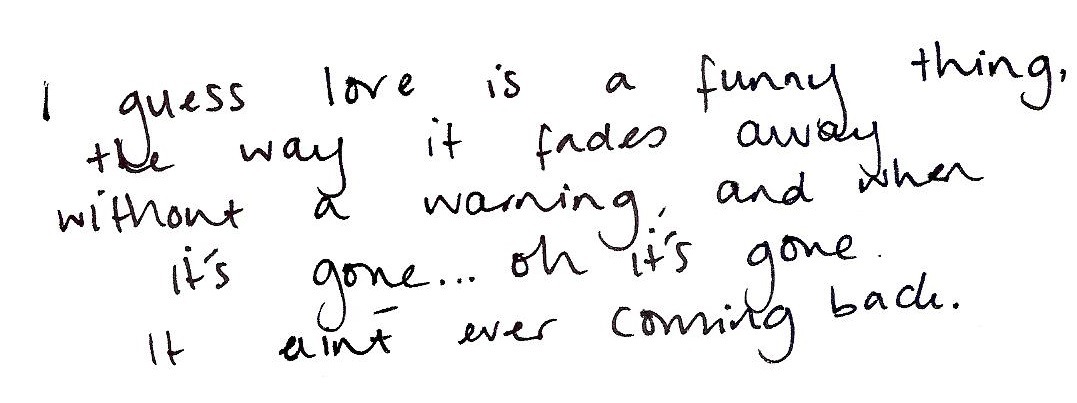 I guess love is a funny thing,
the way it fades away
without a warning, and when
it's gone... oh it's gone.
It ain't ever coming back.